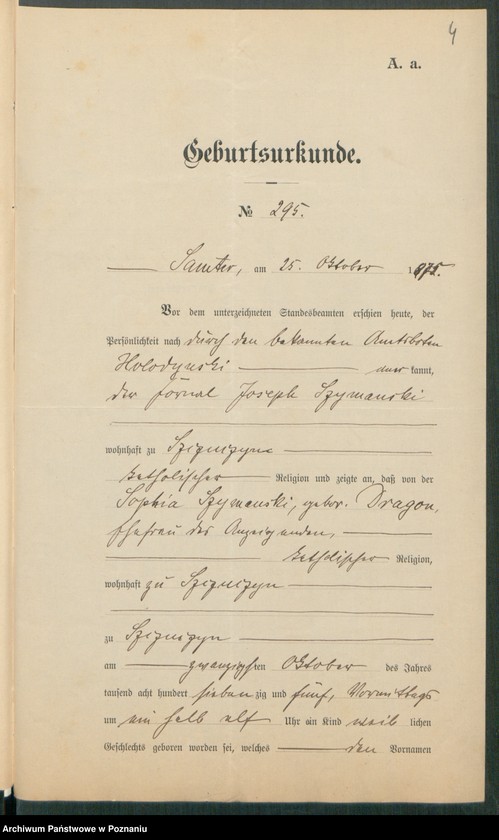 4
A. a.
Geburtsurkunde.
№ 295.
Samter, am 25. Oktober 1875.
Vor dem unterzeichneten Standesbeamten erschien heute, der
Persönlichkeit nach durch den bekannten Amtsboten
Holodynski kannt,
der Fornal Joseph Szymanski
wohnhaft zu
katholischer Religion und zeigte an, daß von der
Sophia Szymanski, gebor. Dragon,
Ehefrau des Anzeigenden,
katholischer Religion,
wohnhaft zu
zu
am zwanzigsten Oktober des Jahres
tausend acht hundert sieben zig und fünf, Vormittags
um ein halb elf Uhr ein Kind weib lichen
Geschlechts geboren worden sei, welches den Vornamen
Archiwum Państwowe w Poznaniu
szukajwarchiwach.gov.pl